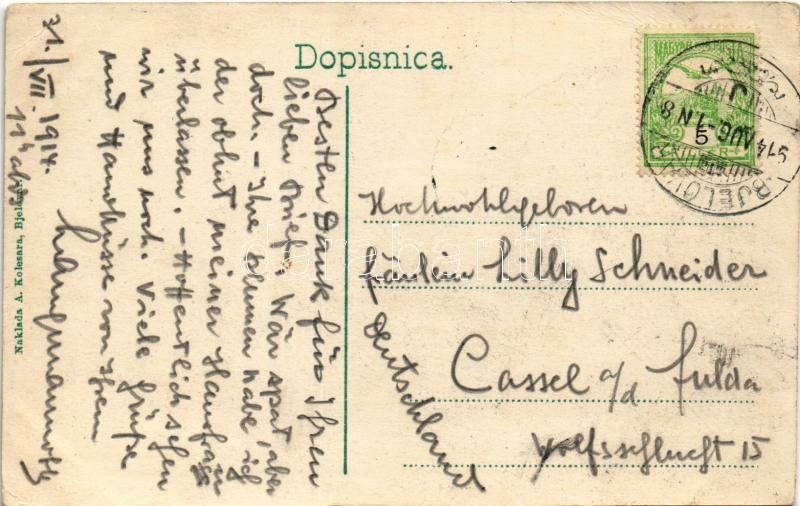 Dopisnica.
31./VII. 1914.
Besten Dank für Ihren
lieben Brief. Wär spät, aber
doch. – Ihre Blumen habe ich
der obhut meiner Hausfrau
überlassen. – Hoffentlich sehen
wir uns noch. Viele Grüße
und Handküsse von Ihrem
Naklada A. Kolesara, Bjelovar.
MAGYAR
5
BJELOVAR
914 AUG -1 N 8
Hochwohlgeboren
Fräulein Lilly Schneider
Cassel a/d Fulda
Wolfsschlucht 15
Deutschland
darabanth